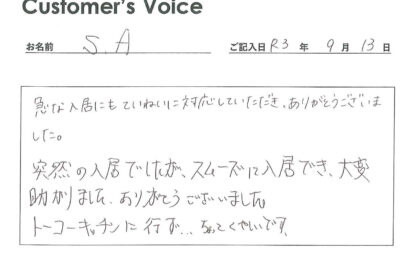 Customer's Voice
お名前 S.A ご記入日 R3 年 9 月 13 日
急な入居にもていねいに対応していただき、ありがとうございま
した。
突然の入居でしたが、スムーズに入居でき、大変
助かりました。ありがとうございました。
トーコーキッチンに行けず... ちょっとくやしいです。